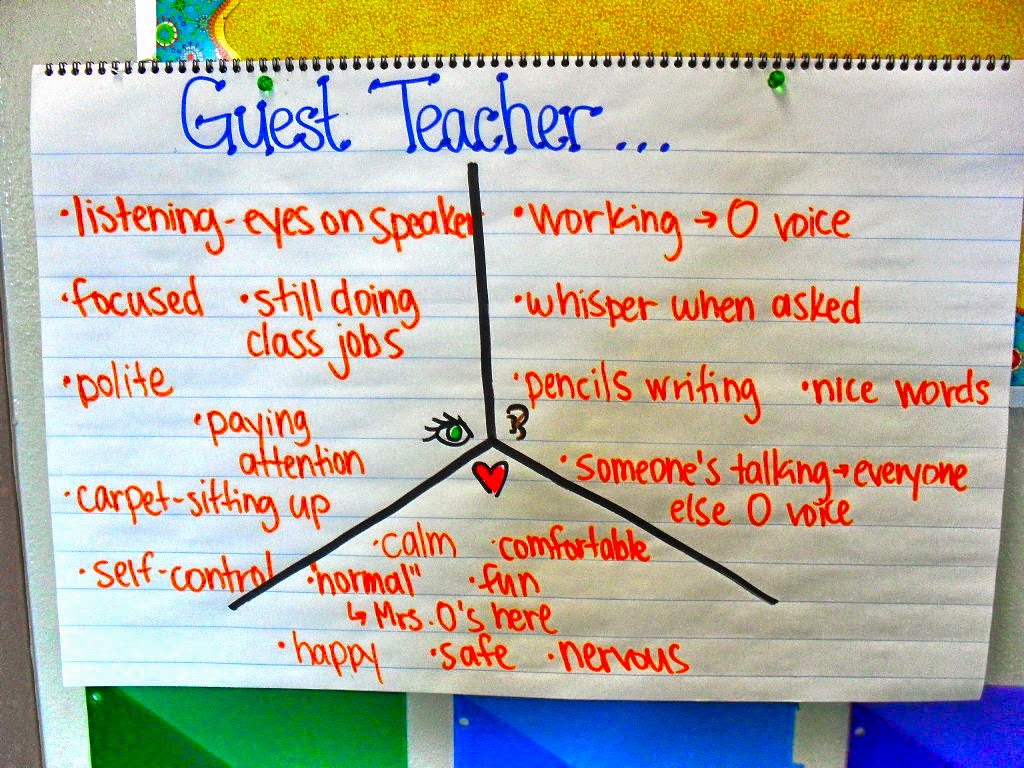 Guest Teacher...
•listening-eyes on speaker
•focused •still doing
class jobs
•polite
•paying
attention
•carpet-sitting up
•self-control
•working → 0 voice
•whisper when asked
•pencils writing •nice words
•someone's talking→everyone
else 0 voice
•calm •comfortable
•"normal" •fun
↳ Mrs. O's here
•happy •safe •nervous